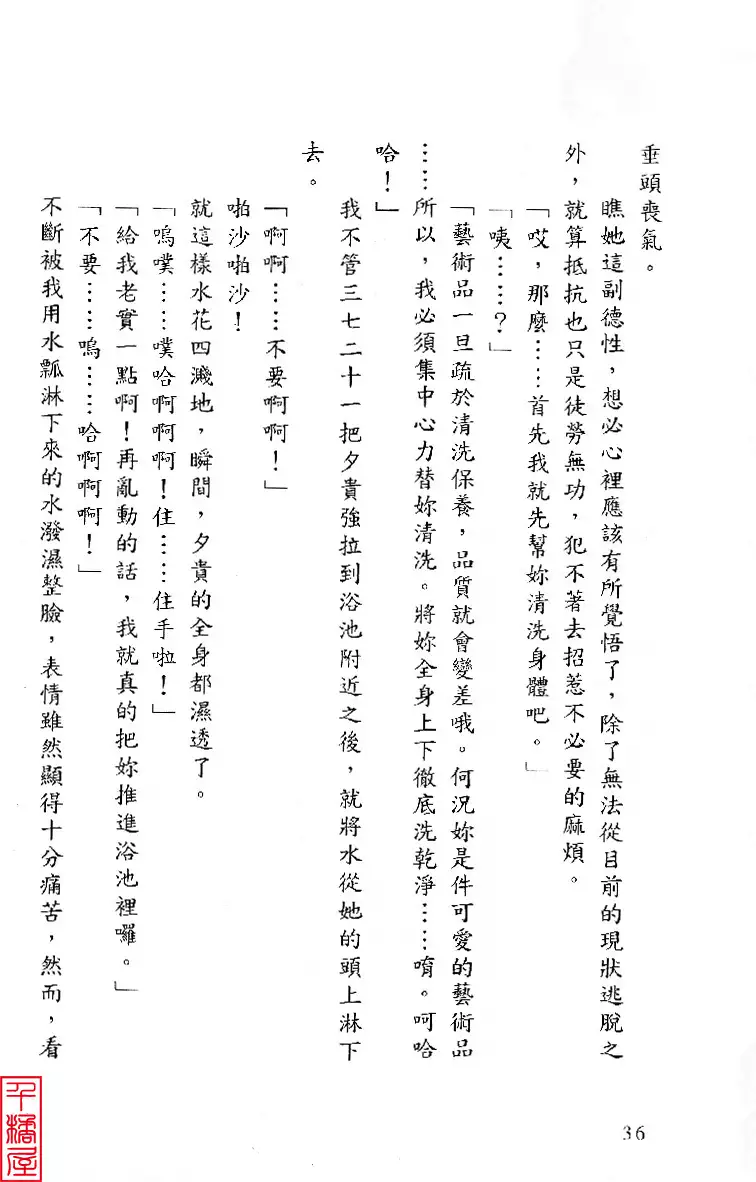 垂頭喪氣。
瞧她這副德性，想必心裡應該有所覺悟了，除了無法從目前的現狀逃脫之
外，就算抵抗也只是徒勞無功，犯不著去招惹不必要的麻煩。
「哎，那麼……首先我就先幫妳清洗身體吧。」
「咦……？」
「藝術品一旦疏於清洗保養，品質就會變差哦。何況妳是件可愛的藝術品
……所以，我必須集中心力替妳清洗。將妳全身上下徹底洗乾淨……唷。呵哈
哈！」
我不管三七二十一把夕貴強拉到浴池附近之後，就將水從她的頭上淋下
去。
「啊啊……不要啊啊！」
啪沙啪沙！
就這樣水花四濺地，瞬間，夕貴的全身都濕透了。
「嗚噗……噗哈啊啊啊！住……住手啦！」
「給我老實一點啊！再亂動的話，我就真的把妳推進浴池裡囉。」
「不要……嗚……哈啊啊啊！」
不斷被我用水瓢淋下來的水潑濕整臉，表情雖然顯得十分痛苦，然而，看
36
千橘屋